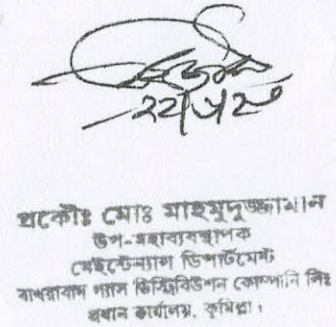 প্রকৌঃ মোঃ মাহমুদুজ্জামান
উপ-মহাব্যবস্থাপক
মেইন্টেন্যান্স ডিপার্টমেন্ট
বাখরাবাদ গ্যাস ডিস্ট্রিবিউশন কোম্পানি লিঃ
প্রধান কার্যালয়, কুমিল্লা।